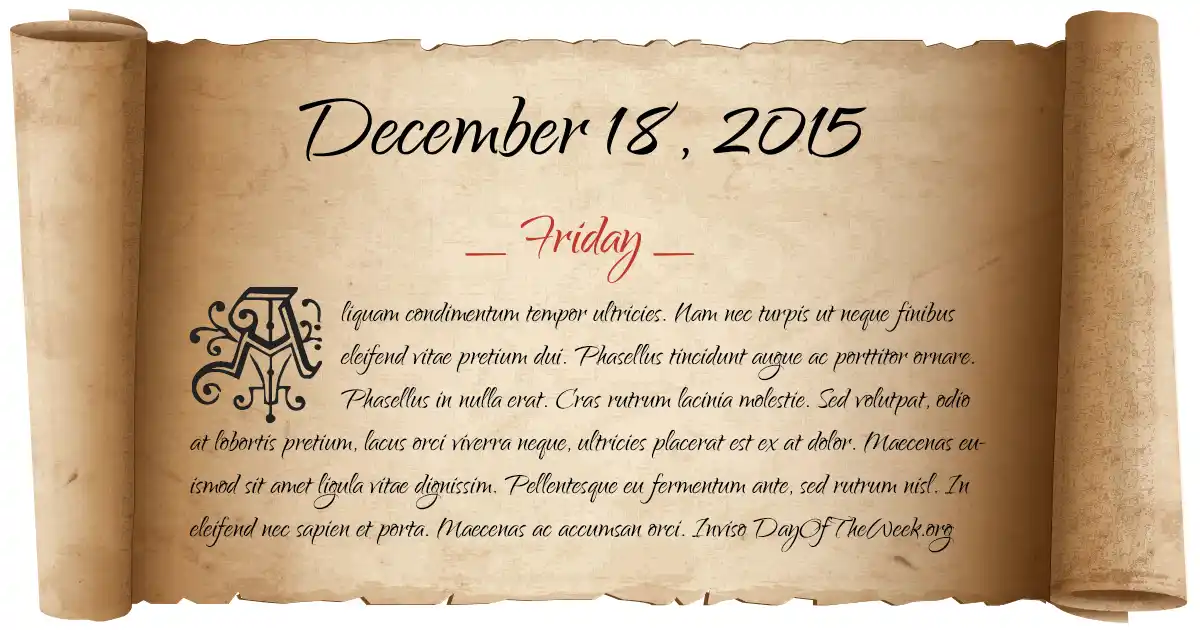 December 18, 2015
_ Friday _
Aliquam condimentum tempor ultricies. Nam nec turpis ut neque finibus
eleifend vitae pretium dui. Phasellus tincidunt augue ac porttitor ornare.
Phasellus in nulla erat. Cras rutrum lacinia molestie. Sed volutpat, odio
at lobortis pretium, lacus orci viverra neque, ultricies placerat est ex at dolor. Maecenas eu-
ismod sit amet ligula vitae dignissim. Pellentesque eu fermentum ante, sed rutrum nisl. In
eleifend nec sapien et porta. Maecenas ac accumsan orci. Inviso DayOfTheWeek.org